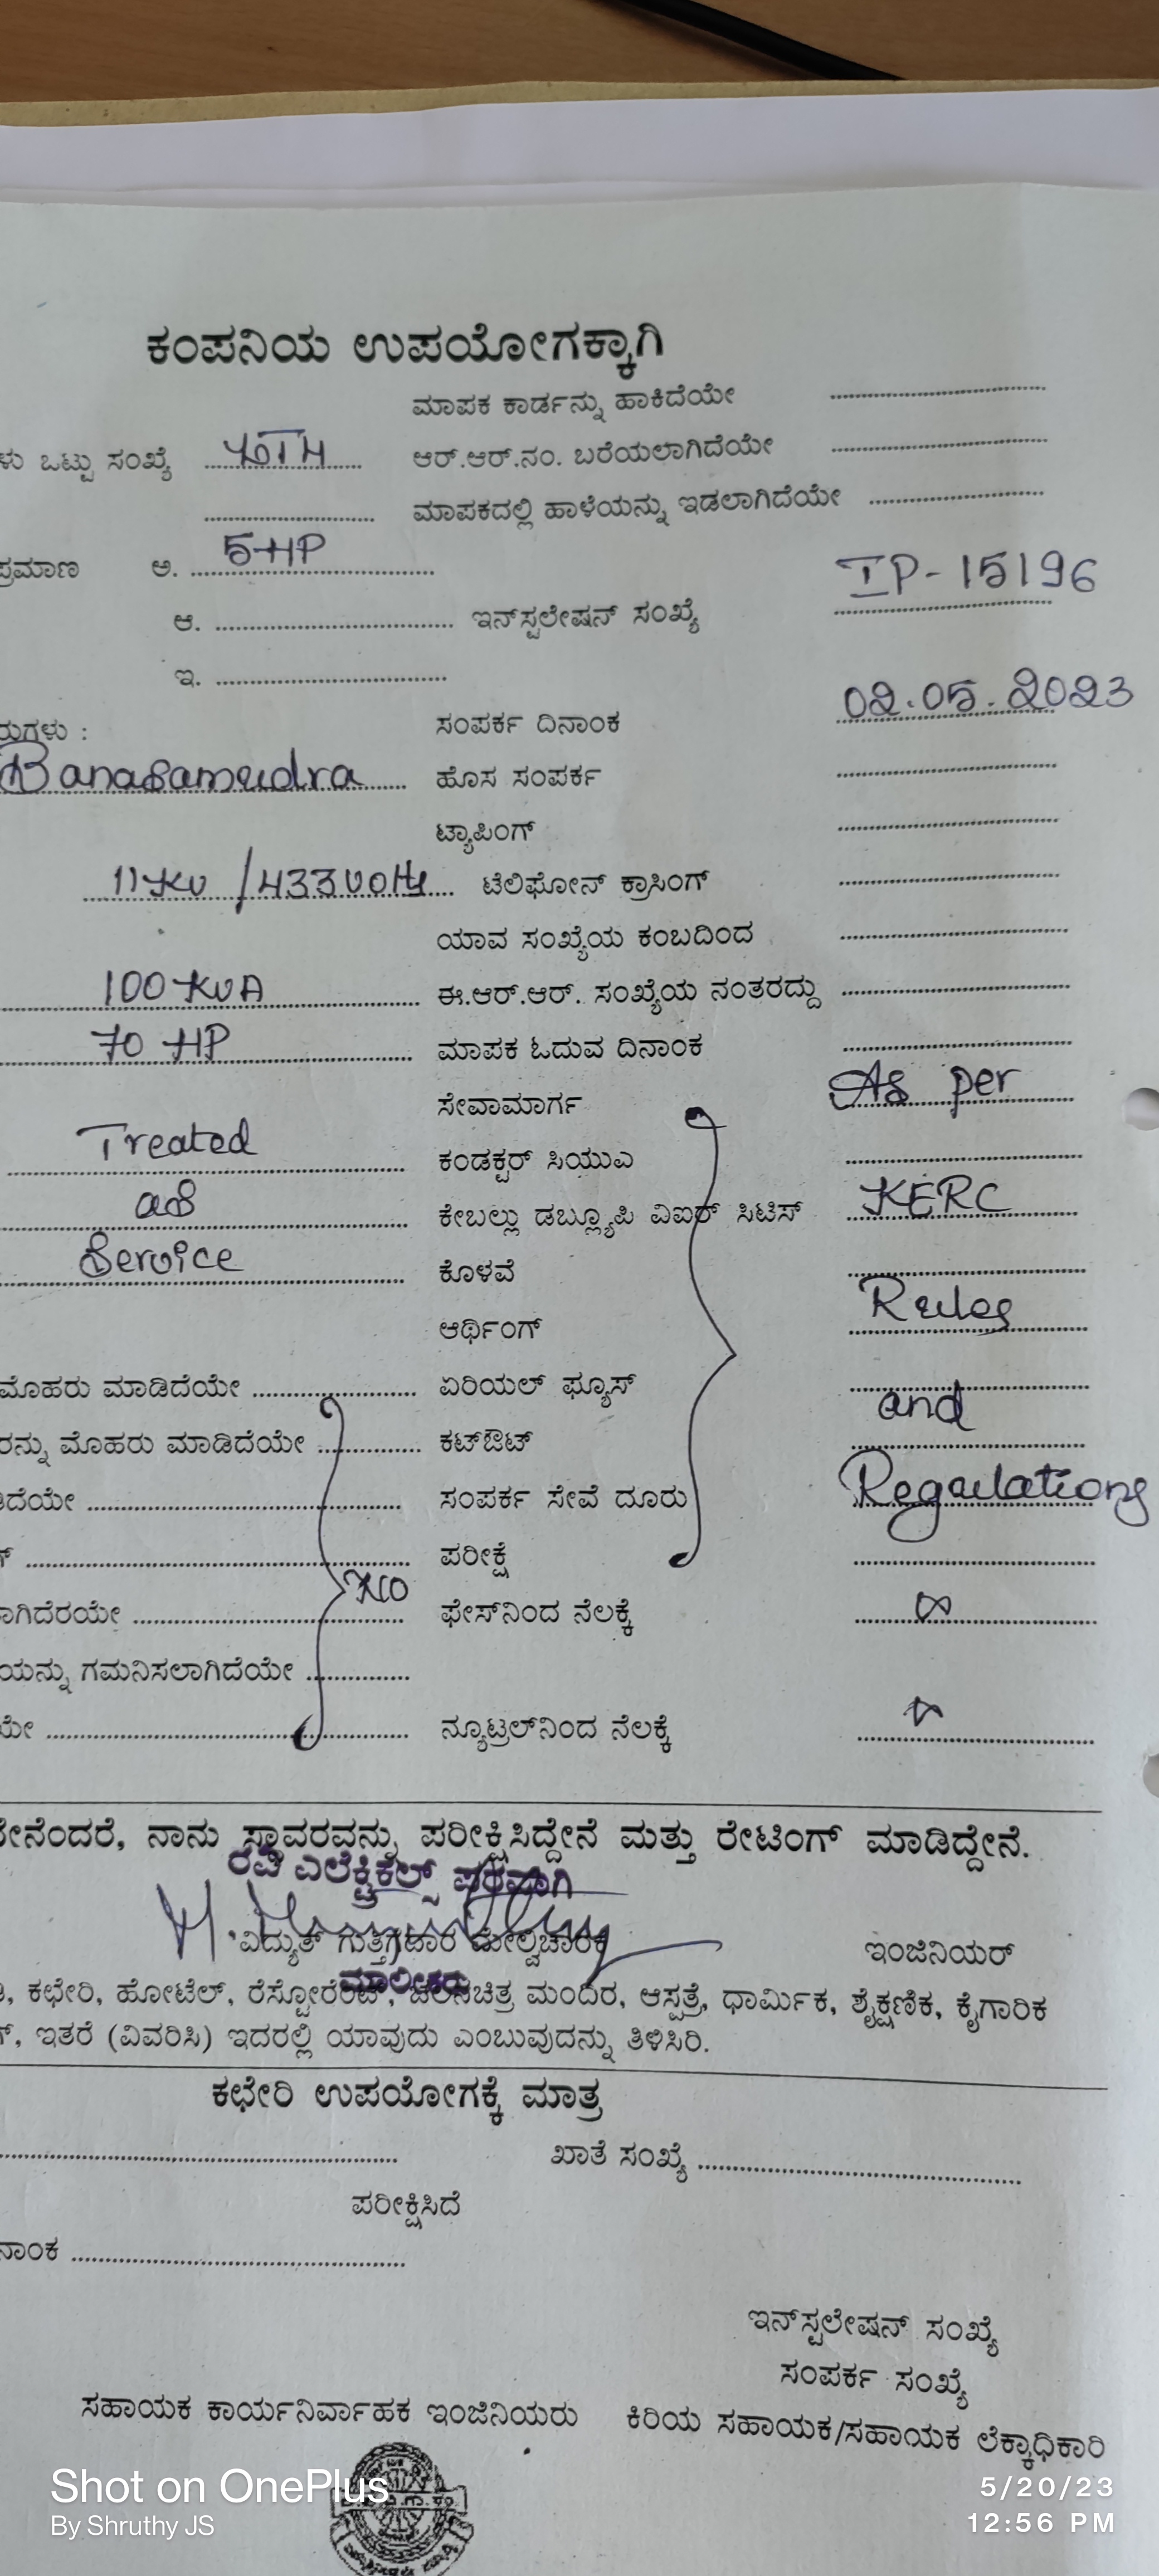 ಕಂಪನಿಯ ಉಪಯೋಗಕ್ಕಾಗಿ
ಮಾಪಕ ಕಾರ್ಡನ್ನು ಹಾಕಿದೆಯೇ
ಒಟ್ಟು ಸಂಖ್ಯೆ ಆರ್.ಆರ್.ನಂ. ಬರೆಯಲಾಗಿದೆಯೇ
ಮಾಪಕದಲ್ಲಿ ಹಾಳೆಯನ್ನು ಇಡಲಾಗಿದೆಯೇ
ಪ್ರಮಾಣ ಅ. 5 HP
ಆ. ಇನ್‌ಸ್ಟಲೇಷನ್ ಸಂಖ್ಯೆ IP-15196
ಇ.
ಸಂಪರ್ಕ ದಿನಾಂಕ 02.05.2023
Banasamudra ಹೊಸ ಸಂಪರ್ಕ
ಟ್ಯಾಪಿಂಗ್
11 KV /433 Volts ಟೆಲಿಫೋನ್ ಕ್ರಾಸಿಂಗ್
ಯಾವ ಸಂಖ್ಯೆಯ ಕಂಬದಿಂದ
100 KVA ಈ.ಆರ್.ಆರ್. ಸಂಖ್ಯೆಯ ನಂತರದ್ದು
70 HP ಮಾಪಕ ಓದುವ ದಿನಾಂಕ
ಸೇವಾಮಾರ್ಗ As per
Treated ಕಂಡಕ್ಟರ್ ಸಿಯುಎ
as ಕೇಬಲ್ಲು ಡಬ್ಲ್ಯೂಪಿ ವಿಐಆರ್ ಸಿಟಿಸ್ KERC
Service ಕೊಳವೆ
ಆರ್ಥಿಂಗ್ Rules
ಮೊಹರು ಮಾಡಿದೆಯೇ ಏರಿಯಲ್ ಫ್ಯೂಸ್
and
ಮೊಹರು ಮಾಡಿದೆಯೇ ಕಟ್‌ಔಟ್
ಸಂಪರ್ಕ ಸೇವೆ ದೂರು Regulations
ಪರೀಕ್ಷೆ
NO
ಫೇಸ್‌ನಿಂದ ನೆಲಕ್ಕೆ
ಗಮನಿಸಲಾಗಿದೆಯೇ
ನ್ಯೂಟ್ರಲ್‌ನಿಂದ ನೆಲಕ್ಕೆ
ನಾನು ಸ್ಥಾವರವನ್ನು ಪರೀಕ್ಷಿಸಿದ್ದೇನೆ ಮತ್ತು ರೇಟಿಂಗ್ ಮಾಡಿದ್ದೇನೆ.
ರವಿ ಎಲೆಕ್ಟ್ರಿಕಲ್ಸ್ ಪರವಾಗಿ
ವಿದ್ಯುತ್ ಗುತ್ತಿಗೆದಾರ ಮೇಲ್ವಿಚಾರಕ ಇಂಜಿನಿಯರ್
ಮಾಲೀಕರು
ಕಛೇರಿ, ಹೋಟೆಲ್, ರೆಸ್ಟೋರೆಂಟ್, ಚಲನಚಿತ್ರ ಮಂದಿರ, ಆಸ್ಪತ್ರೆ, ಧಾರ್ಮಿಕ, ಶೈಕ್ಷಣಿಕ, ಕೈಗಾರಿಕ
ಇತರೆ (ವಿವರಿಸಿ) ಇದರಲ್ಲಿ ಯಾವುದು ಎಂಬುವುದನ್ನು ತಿಳಿಸಿರಿ.
ಕಛೇರಿ ಉಪಯೋಗಕ್ಕೆ ಮಾತ್ರ
ಖಾತೆ ಸಂಖ್ಯೆ
ಪರೀಕ್ಷಿಸಿದೆ
ಇನ್‌ಸ್ಟಲೇಷನ್ ಸಂಖ್ಯೆ
ಸಂಪರ್ಕ ಸಂಖ್ಯೆ
ಸಹಾಯಕ ಕಾರ್ಯನಿರ್ವಾಹಕ ಇಂಜಿನಿಯರು ಕಿರಿಯ ಸಹಾಯಕ/ಸಹಾಯಕ ಲೆಕ್ಕಾಧಿಕಾರಿ
Shot on OnePlus
By Shruthy JS
5/20/23
12:56 PM